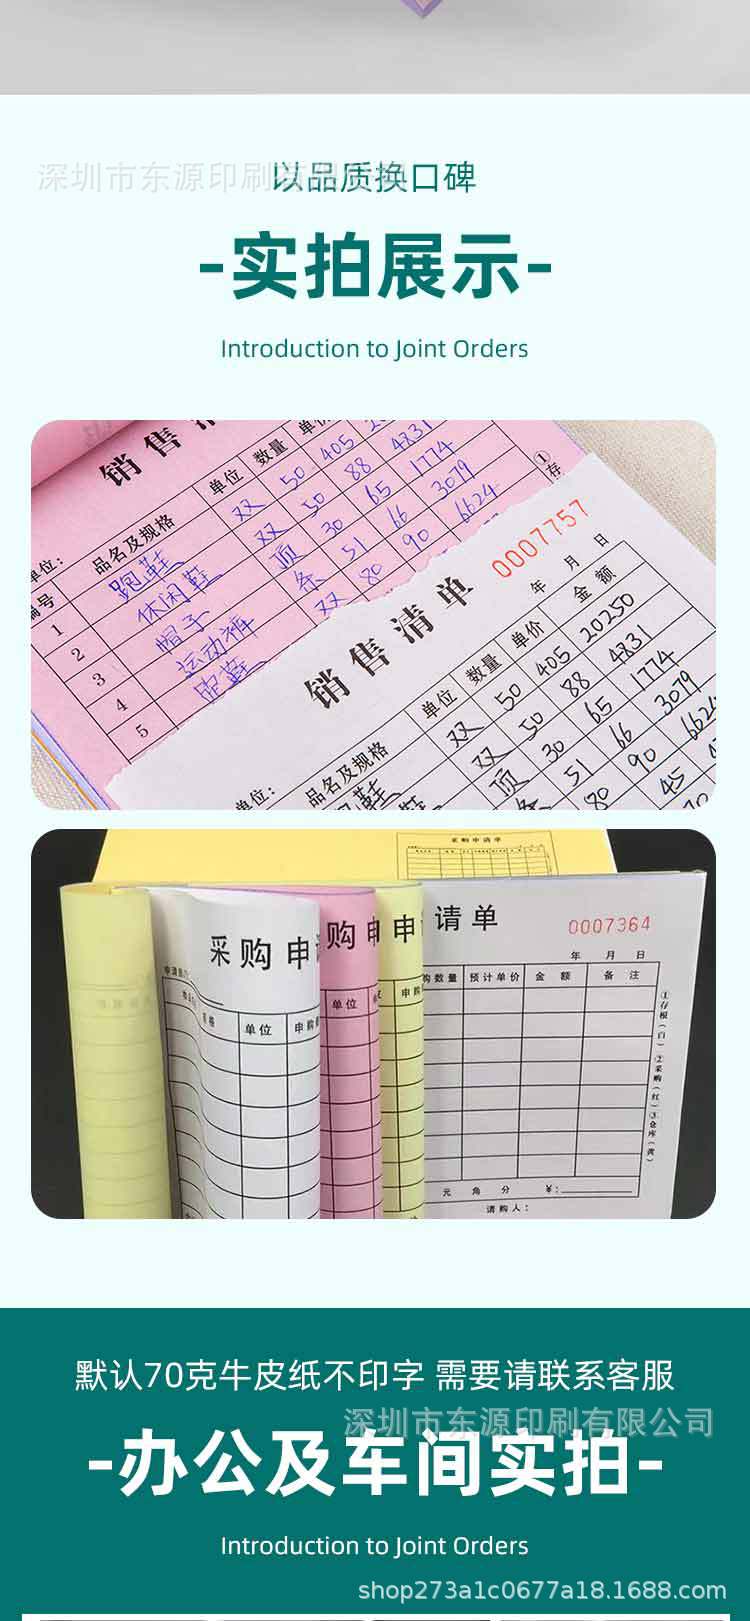 深圳市东源印刷有限公司
以品质换口碑
-实拍展示-
Introduction to Joint Orders
销售清
单位:
编号
品名及规格
单位
数量
单价
1
跑鞋
双
50
405
2
休闲鞋
双
50
88
4831
3
帽子
顶
30
65
1774
4
运动裤
条
51
66
3079
5
跑鞋
双
80
90
6624
①存
销售清单
0007757
年 月 日
单位:
品名及规格
单位
数量
单价
金额
跑鞋
双
50
405
20250
双
50
88
4831
顶
30
65
1774
条
51
66
3079
80
90
6624
45
采购申请单
采购申请单
0007364
年 月 日
单位
申购
购数量
预计单价
金额
备注
①存根(白)②采购(红)③仓库(黄)
元 角 分 ¥:
请购人:
默认70克牛皮纸不印字 需要请联系客服
深圳市东源印刷有限公司
-办公及车间实拍-
Introduction to Joint Orders
shop273a1c0677a18.1688.com